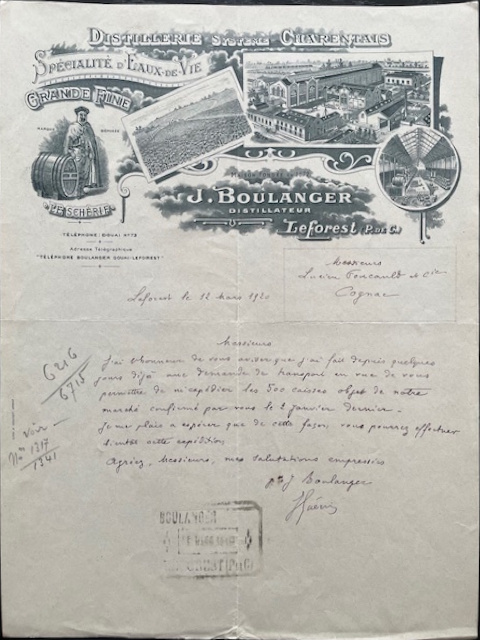 DISTILLERIE SYSTÈME CHARENTAIS
SPÉCIALITÉ D'EAUX-DE-VIE
GRANDE FINE
MARQUE DÉPOSÉE
"PESCHERIE"
TÉLÉPHONE: DOUAI Nº 73
Adresse Télégraphique
"TÉLÉPHONE BOULANGER DOUAI-LEFOREST"
MAISON FONDÉE EN
J. BOULANGER
DISTILLATEUR
Leforest (P. DE C.)
Messieurs
Lucien Foucauld & Cie
Cognac
Leforest le 12 mars 1920
Messieurs
J'ai l'honneur de vous aviser que j'ai fait depuis quelques
jours déjà une demande de transport en vue de vous
permettre de m'expédier les 500 caisses objet de notre
marché confirmé par vous le 2 janvier dernier.
Je me plais à espérer que de cette façon vous pourrez effectuer
cette expédition
Agréez, Messieurs, mes salutations empressées
J Boulanger
6216
6715
voir
Nos 1217
1341
BOULANGER